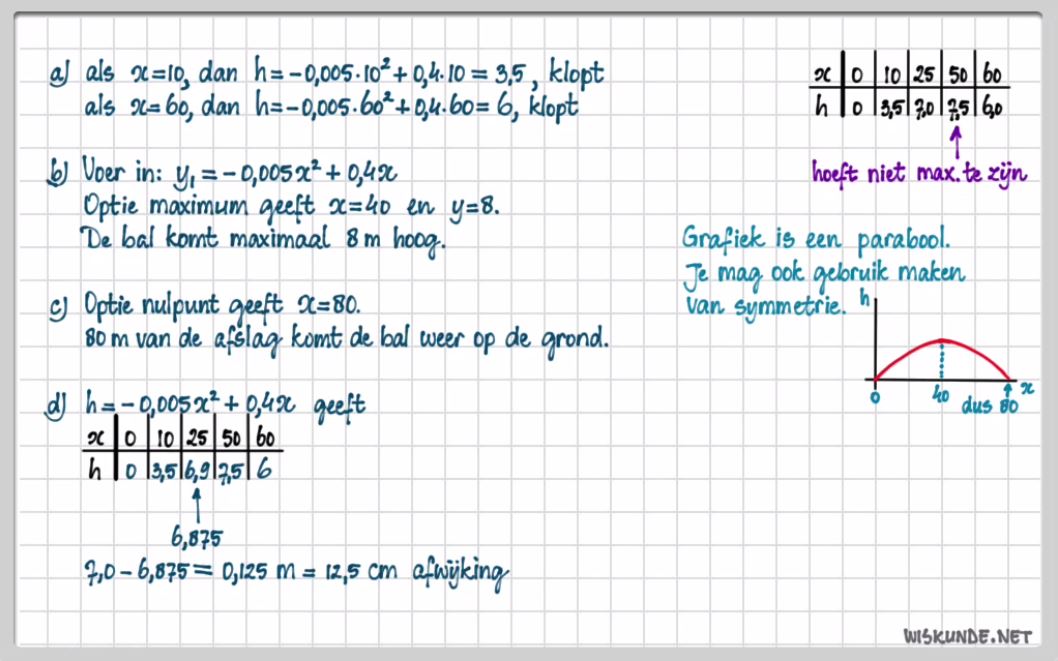 a) als x=10, dan h=-0,005·10²+0,4·10 = 3,5, klopt
als x=60, dan h=-0,005·60²+0,4·60= 6, klopt
x | 0 | 10 | 25 | 50 | 60
h | 0 | 3,5 | 7,0 | 7,5 | 6,0
hoeft niet max. te zijn
b) Voer in: y₁ = -0,005x² + 0,4x
Optie maximum geeft x=40 en y=8.
De bal komt maximaal 8 m hoog.
Grafiek is een parabool.
Je mag ook gebruik maken
van symmetrie.
h
0
40
dus 80
x
c) Optie nulpunt geeft x=80.
80 m van de afslag komt de bal weer op de grond.
d) h = -0,005x² + 0,4x geeft
x | 0 | 10 | 25 | 50 | 60
h | 0 | 3,5 | 6,9 | 7,5 | 6
6,875
7,0 - 6,875 = 0,125 m = 12,5 cm afwijking
WISKUNDE.NET